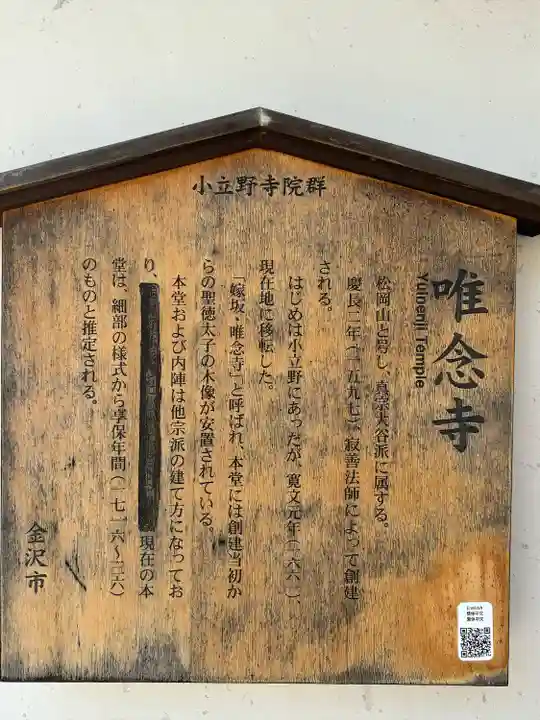 小立野寺院群
唯念寺
Yuinenji Temple
松岡山と号し、真宗大谷派に属する。
慶長二年（一五九七）、寂善法師によって創建
される。
はじめは小立野にあったが、寛文元年（一六六一）、
現在地に移転した。
「嫁坂・唯念寺」と呼ばれ、本堂には創建当初か
らの聖徳太子の木像が安置されている。
本堂および内陣は他宗派の建て方になってお
り、現在の本
堂は、細部の様式から享保年間（一七一六～三六）
のものと推定される。
金沢市